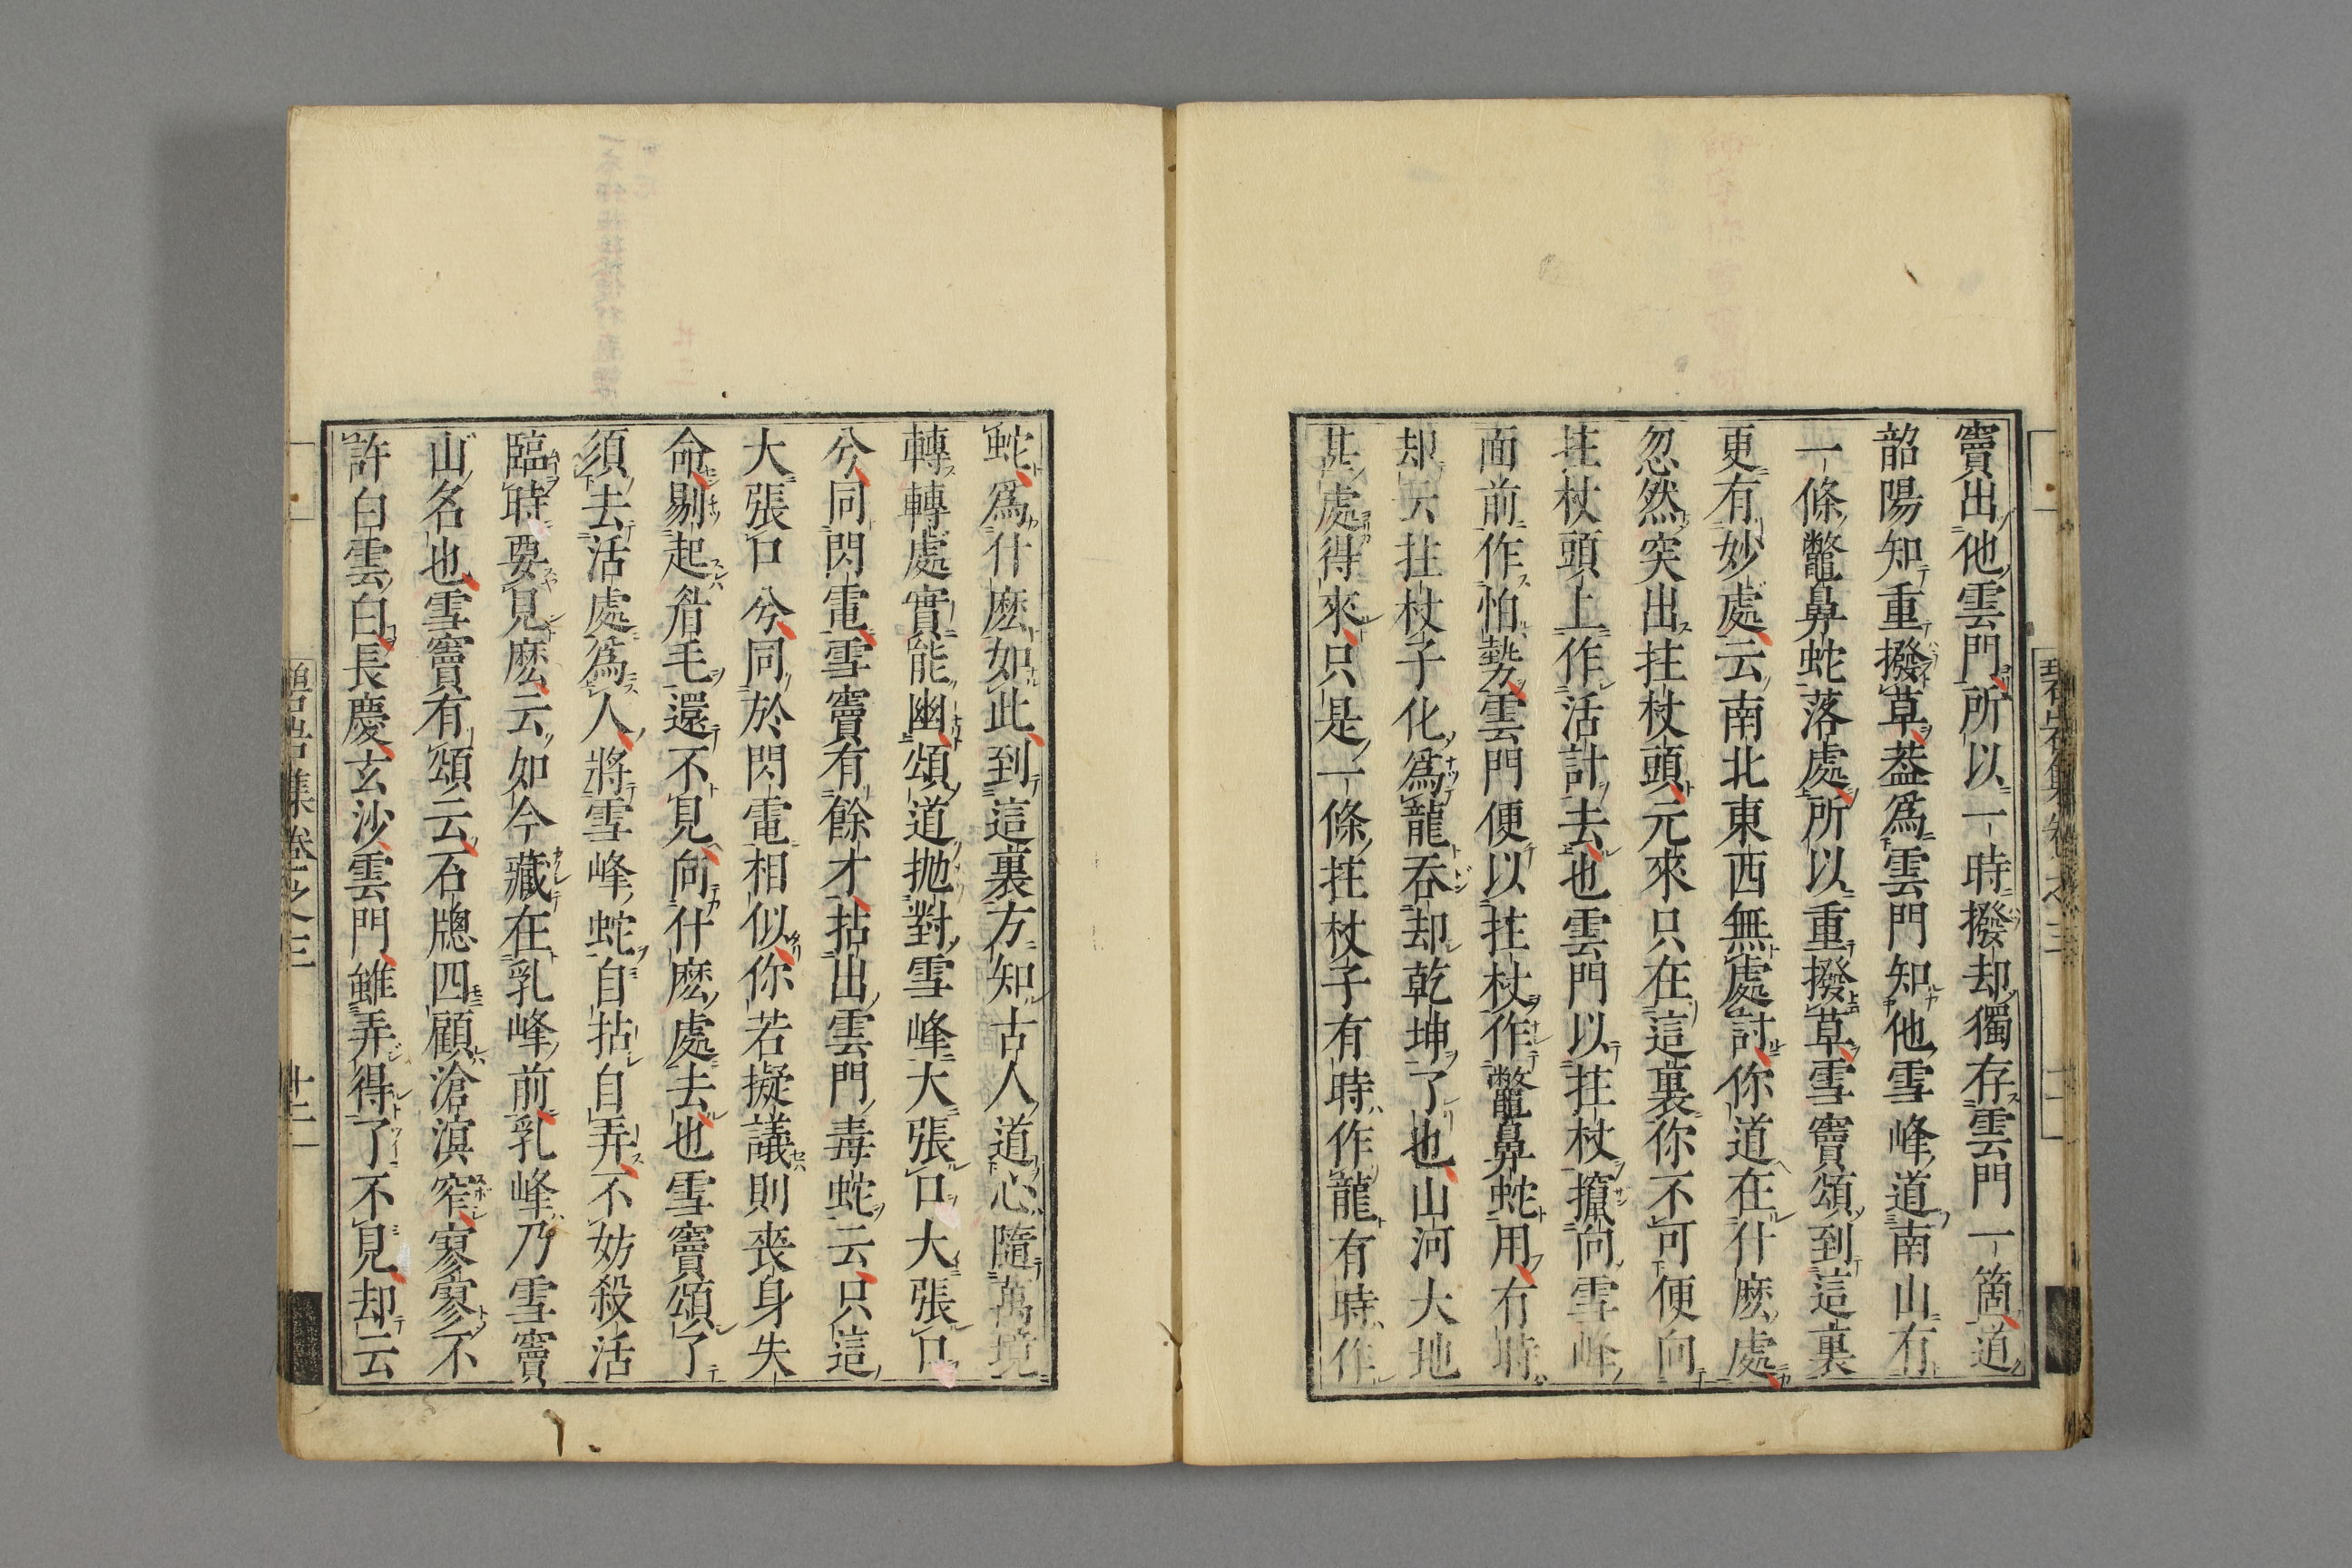 竇出他雲門所以一時撥却獨存雲門一箇道
韶陽知重撥草葢爲雲門知他雪峰道南山有
一條鼈鼻蛇落處所以重撥草雪竇頌到這裏
更有妙處云南北東西無處討你道在什麽處
忽然突出拄杖頭元來只在這裏你不可便向
拄杖頭上作活計去也雲門以拄杖攛向雪峰
面前作怕勢雲門便以拄杖作鼈鼻蛇用有時
却云拄杖子化爲龍吞却乾坤了也山河大地
甚處得來只是一條拄杖子有時作龍有時作
蛇爲什麽如此到這裏方知古人道心隨萬境
轉轉處實能幽頌道抛對雪峰大張口大張口
兮同閃電雪竇有餘才拈出雲門毒蛇云只這
大張口兮同於閃電相似你若擬議則喪身失
命剔起眉毛還不見向什麽處去也雪竇頌了
須去活處爲人將雪峰蛇自拈自弄不妨殺活
臨時要見麽云如今藏在乳峰前乳峰乃雪竇
山名也雪竇有頌云石牎四顧滄溟窄寥寥不
許白雲白長慶玄沙雲門雖弄得了不見却云
碧岩集卷之三